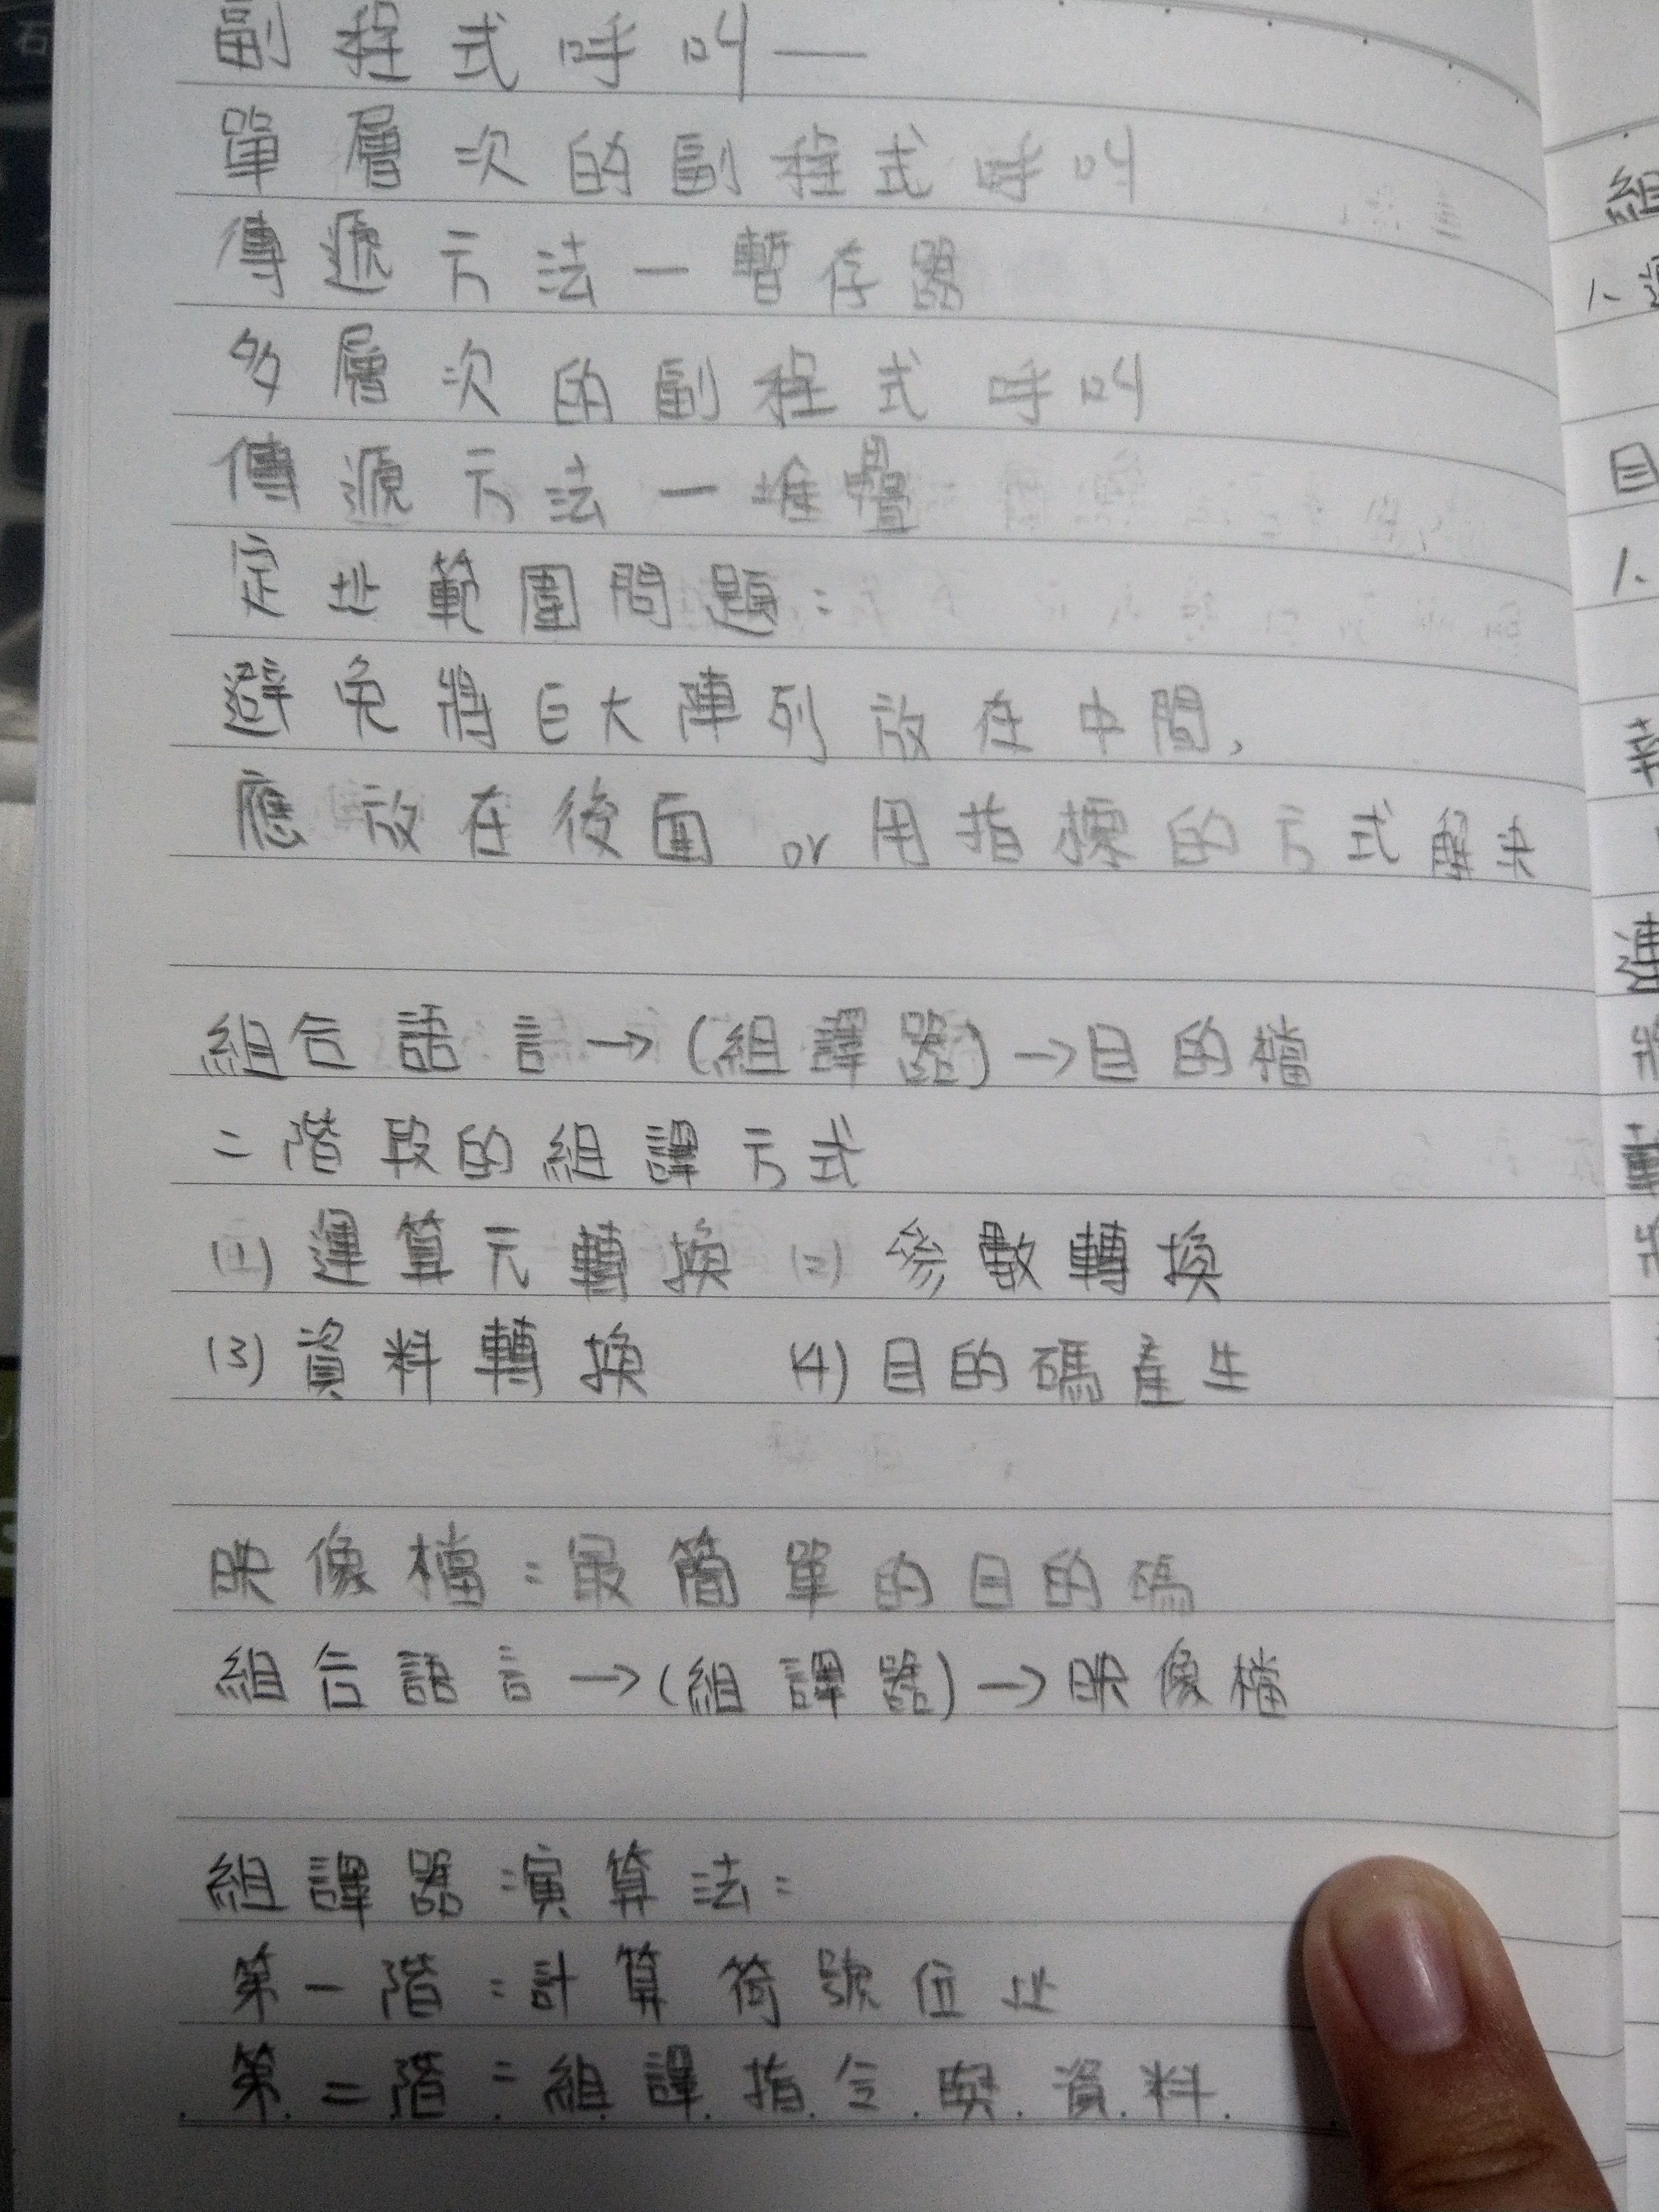 副程式呼叫——
單層次的副程式呼叫
傳遞方法—暫存器
多層次的副程式呼叫
傳遞方法—堆疊
定址範圍問題:
避免將巨大陣列放在中間,
應放在後面 or 用指標的方式解決
組合語言→(組譯器)→目的檔
二階段的組譯方式
(1) 運算元轉換 (2) 參數轉換
(3) 資料轉換 (4) 目的碼產生
映像檔:最簡單的目的碼
組合語言→(組譯器)→映像檔
組譯器:演算法:
第一階:計算符號位址
第二階:組譯指令與資料
組
1.
目
1.